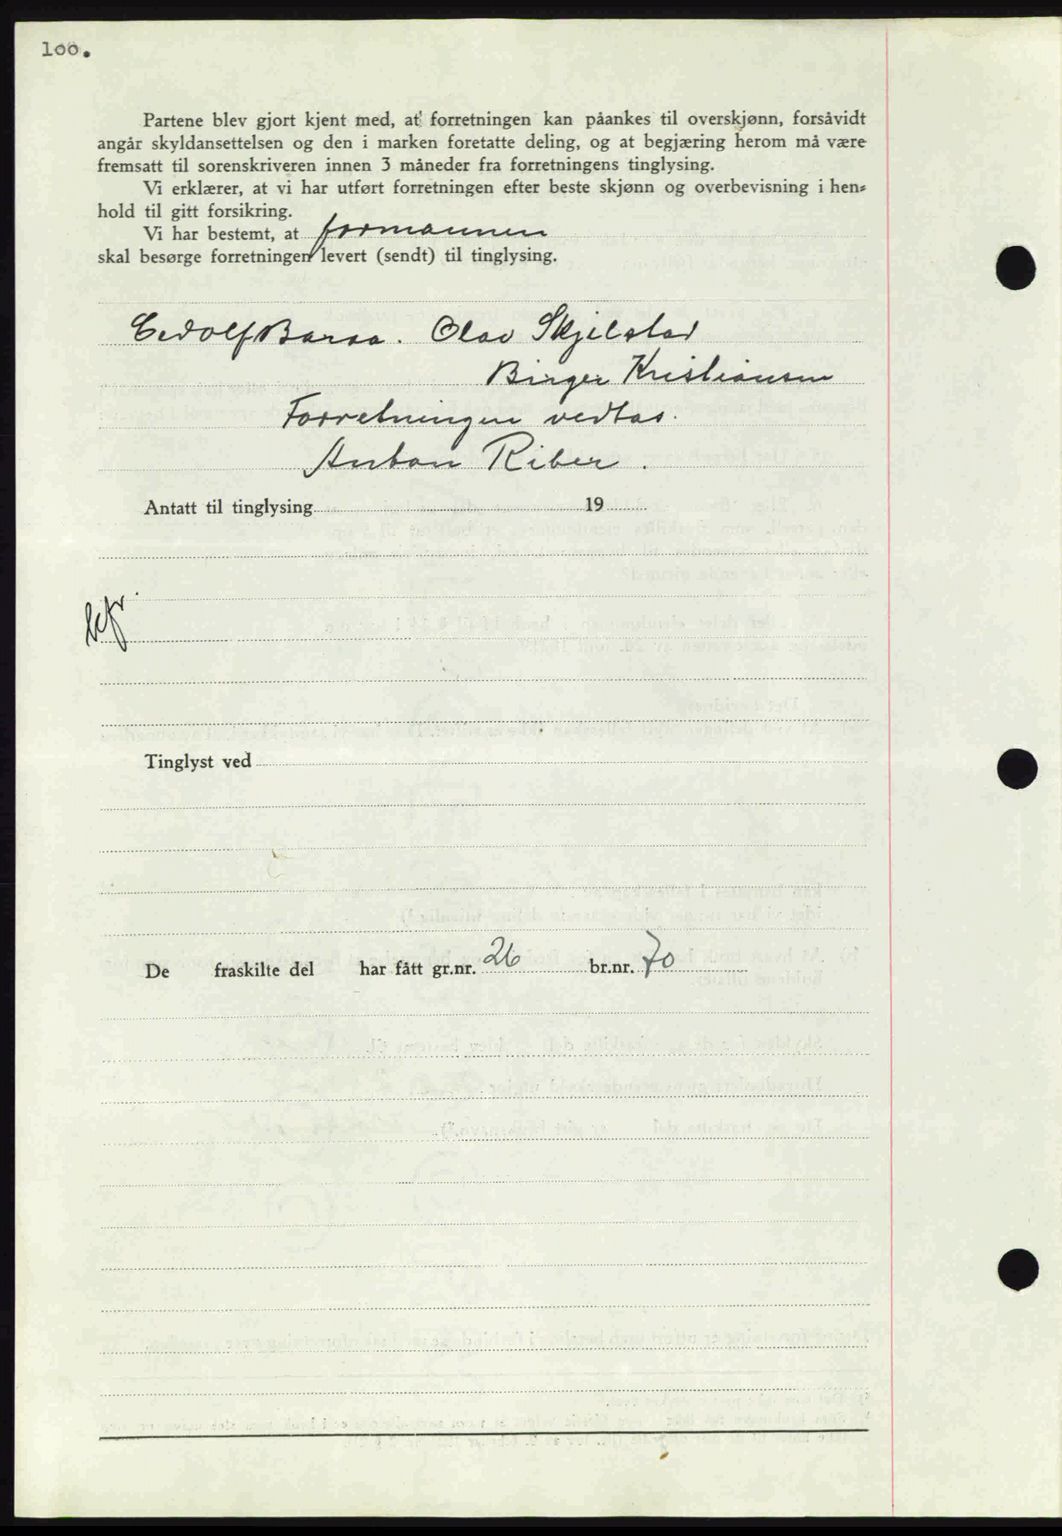 100.
Partene blev gjort kjent med, at forretningen kan påankes til overskjønn, forsåvidt
angår skyldansettelsen og den i marken foretatte deling, og at begjæring herom må være
fremsatt til sorenskriveren innen 3 måneder fra forretningens tinglysing.
Vi erklærer, at vi har utført forretningen efter beste skjønn og overbevisning i hen-
hold til gitt forsikring.
Vi har bestemt, at formannen
skal besørge forretningen levert (sendt) til tinglysing.
Baraa. Olav Skjelstad
Birger Kristiansen
Forretningen vedtas.
Anton Riber.
Antatt til tinglysing 19
kfr.
Tinglyst ved
De fraskilte del har fått gr.nr. 26 br.nr. 70